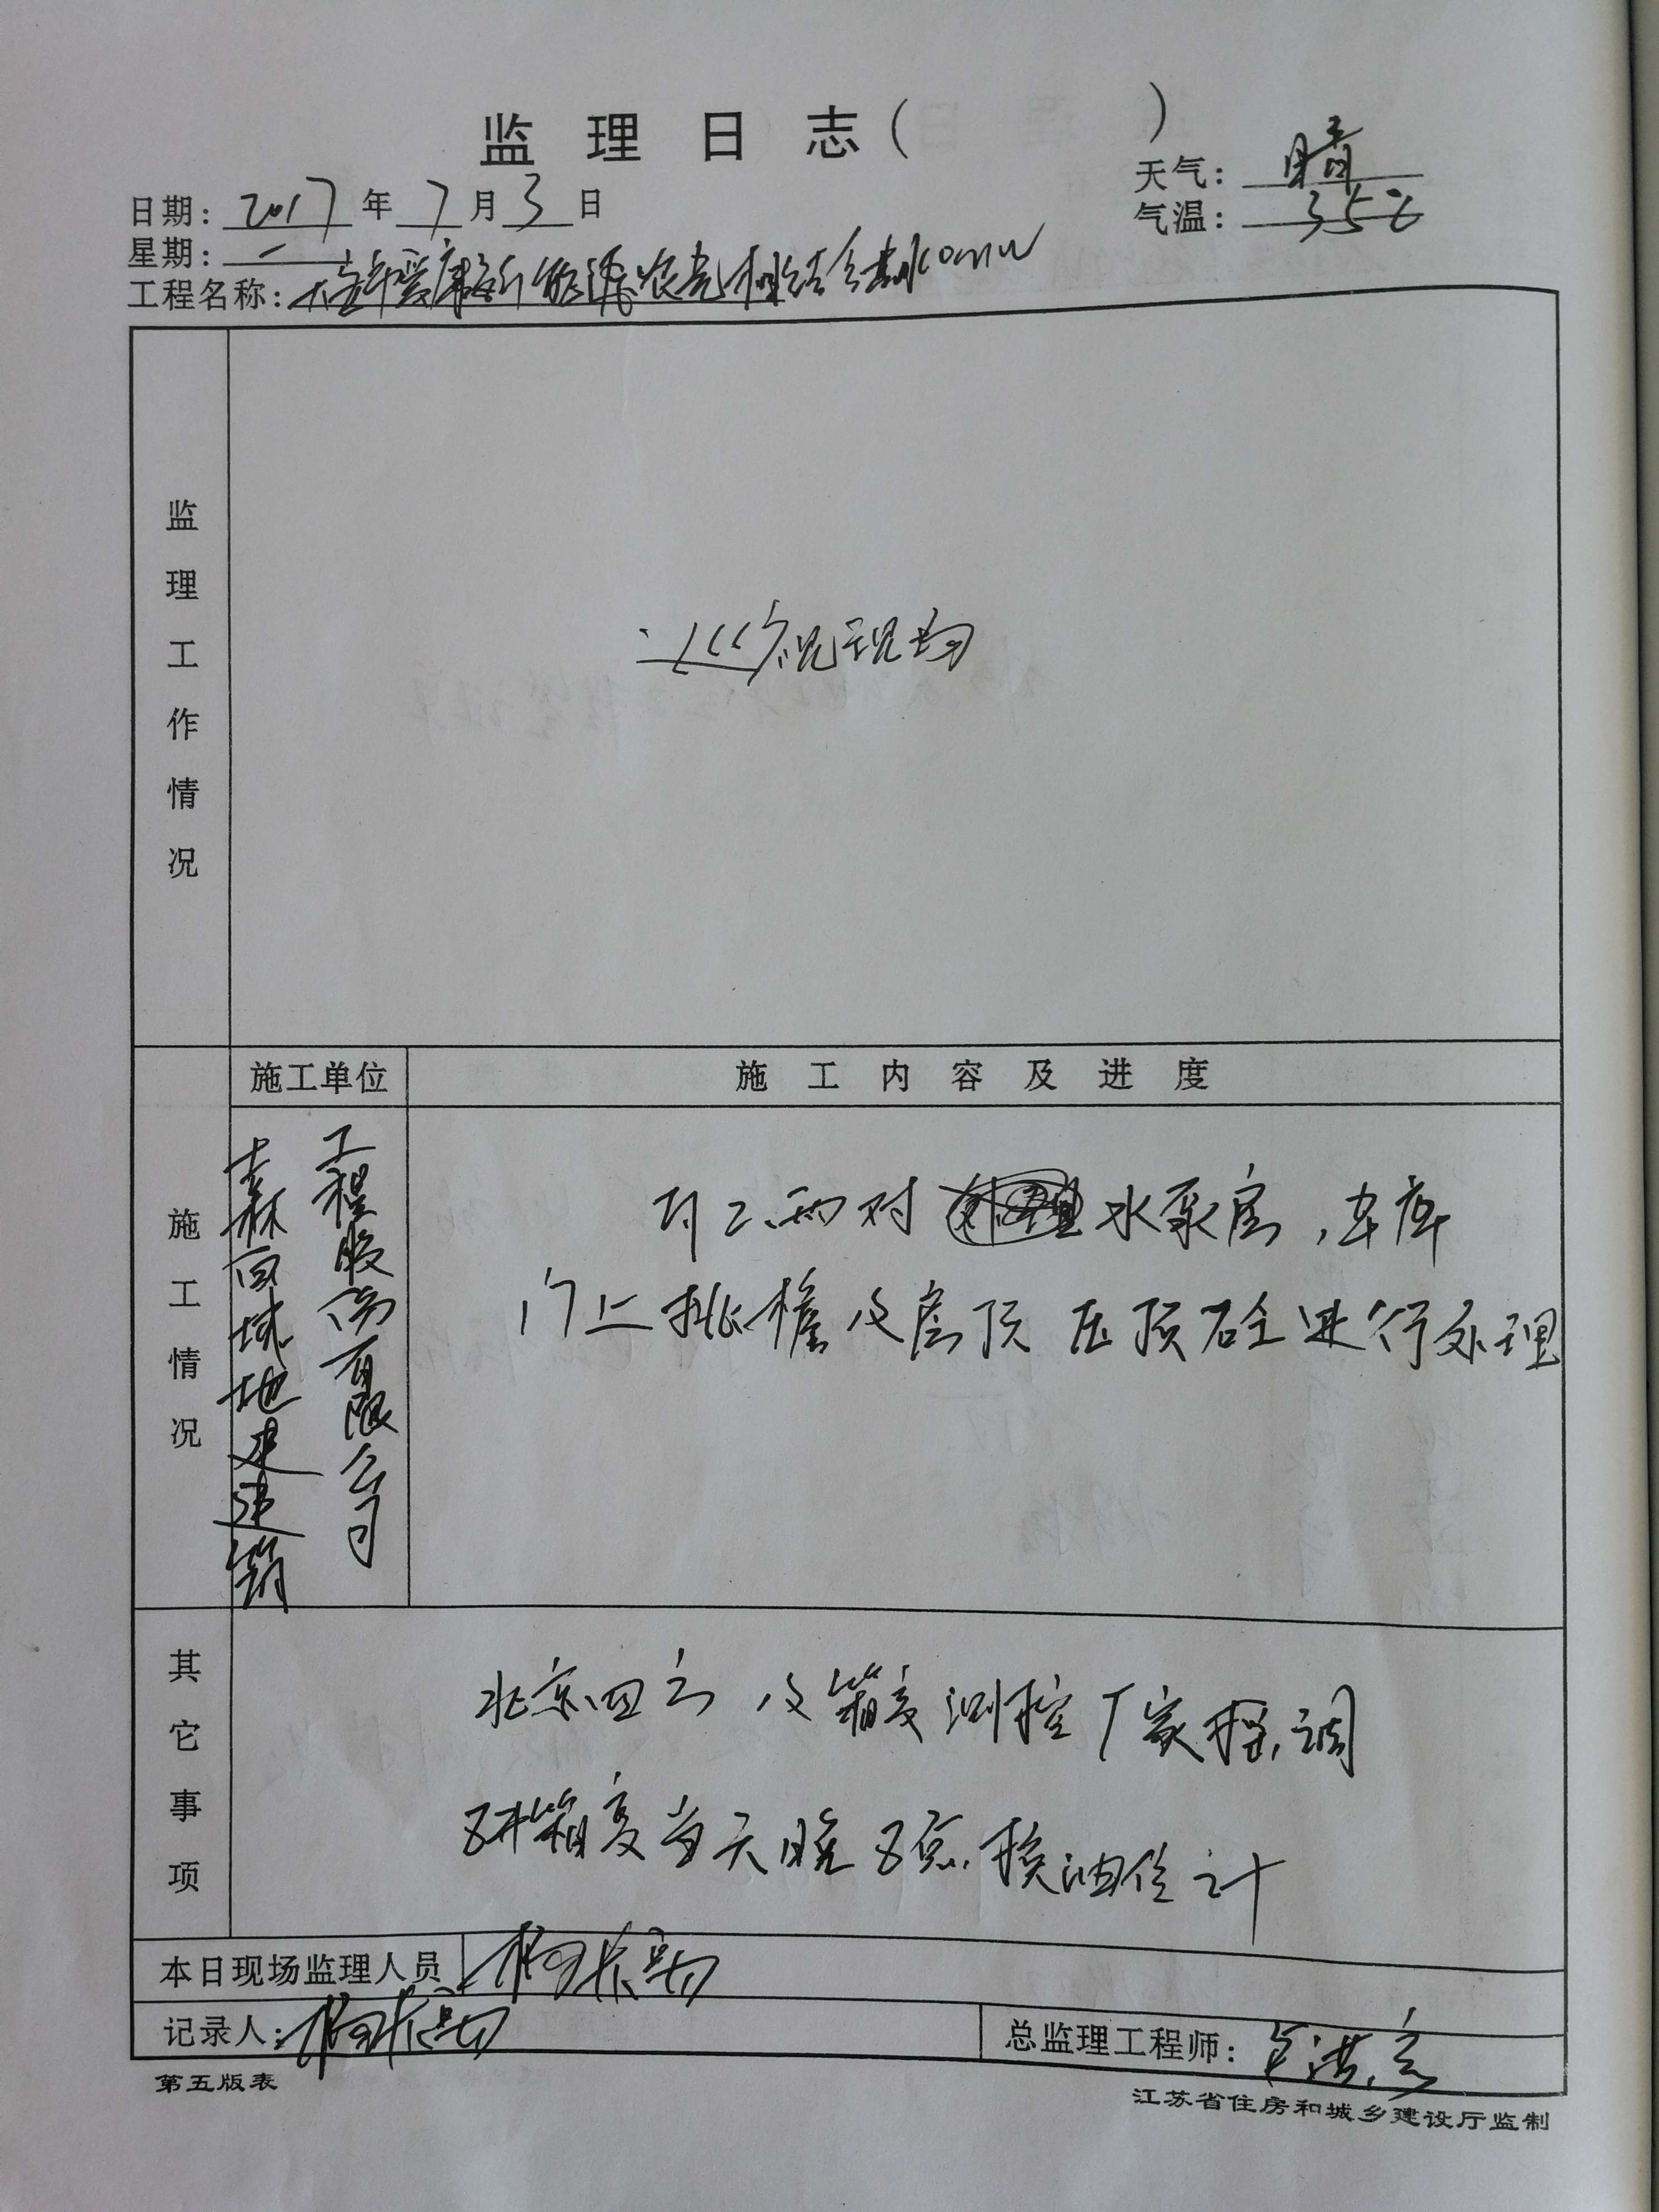 监理日志（ ）
天气：晴
日期：2017年7月3日
气温：35℃
星期：一
工程名称：新能源农光互补结合
监理工作情况
巡视现场
施工单位
施工内容及进度
施工情况
工程股份有限公司
森 地 建筑
对水泵房，车库
门上挑檐及屋顶压顶砼进行处理
其它事项
北京四方及箱变测控厂家 调
箱变当天晚 换油位计
本日现场监理人员
记录人：
总监理工程师：
第五版表
江苏省住房和城乡建设厅监制